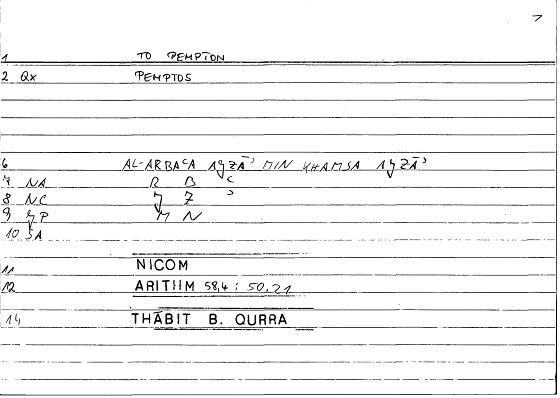 7
1 TO PEMPTON
2 Qx PEMPTOS
6 AL-ARBAʿA AǧZĀʾ MIN KHAMSA AǧZĀʾ
7 NA R B ʿ
8 NC ǧ Z ʾ
9 ǧP M N
10 SA
11 NICOM
12 ARITHM 58,4 : 50,21
14 THĀBIT B. QURRA